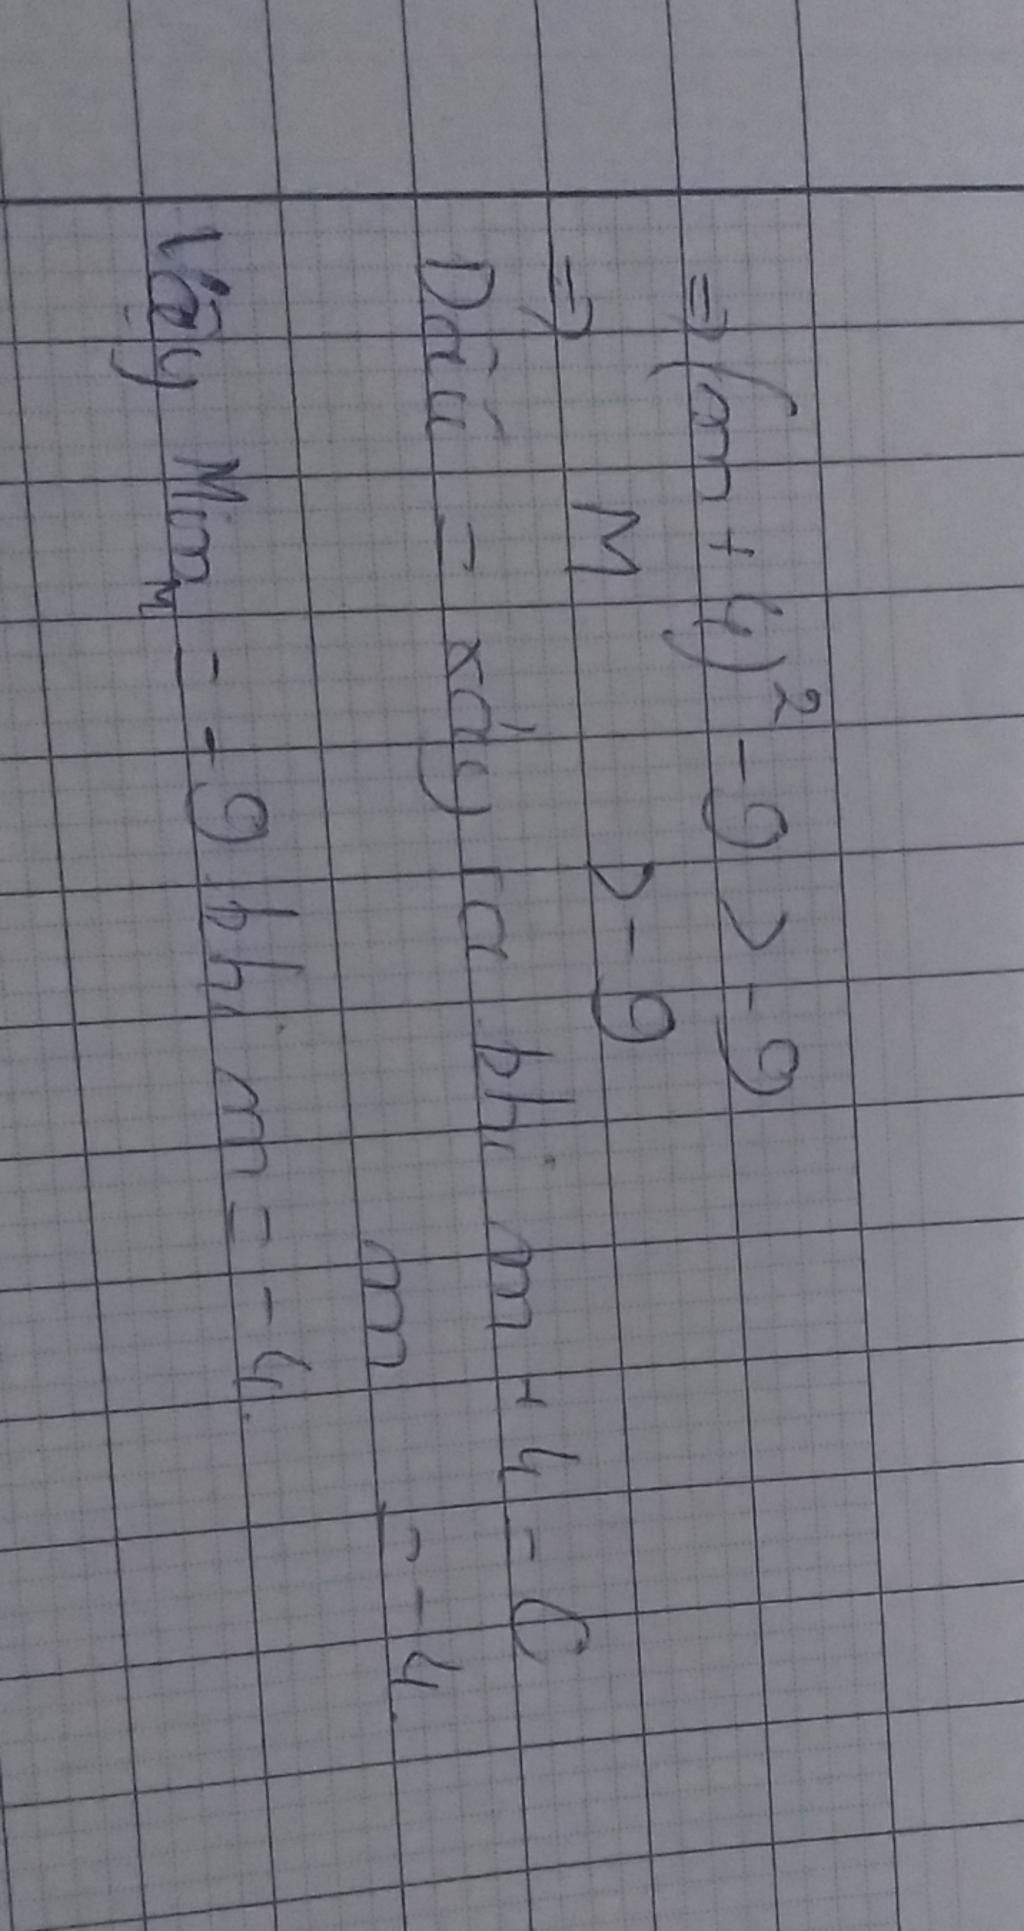 => (m + 4)² - 9 > - 9
=> M > - 9
Dấu = xảy ra khi m + 4 = 0
m = - 4.
Vậy Min_M = - 9 khi m = - 4.